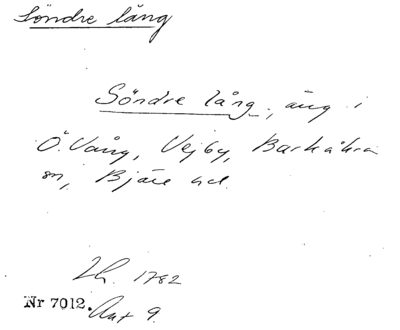 Söndre lång
Söndre lång, äng i
Ö. Vång, Vejby, Barkåkra
sn, Bjäre hd.
Lh. 1782
Nr 7012. Akt 9.